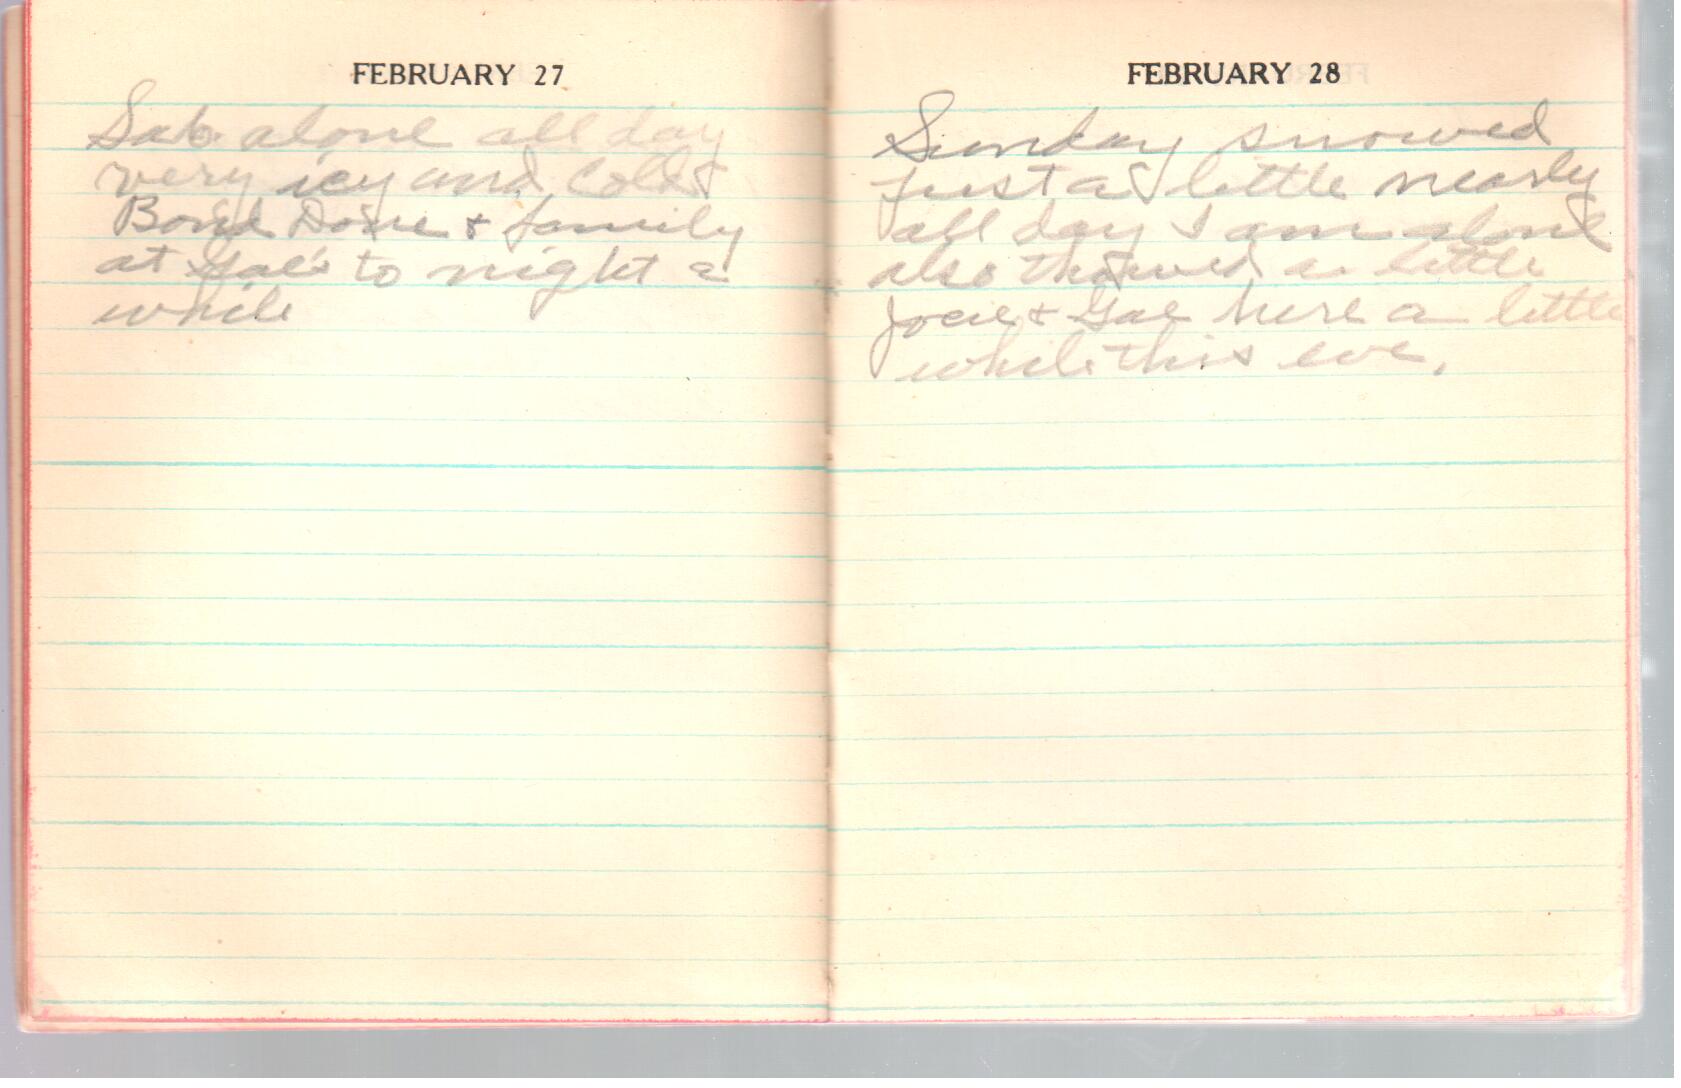 FEBRUARY 27
Sat. alone all day
very icy and Cold
& family
at Gae's to night a
while
FEBRUARY 28
Sunday snowed
just a little nearly
all day I am alone
also thawed a little
Josie & Gae here a little
while this eve.